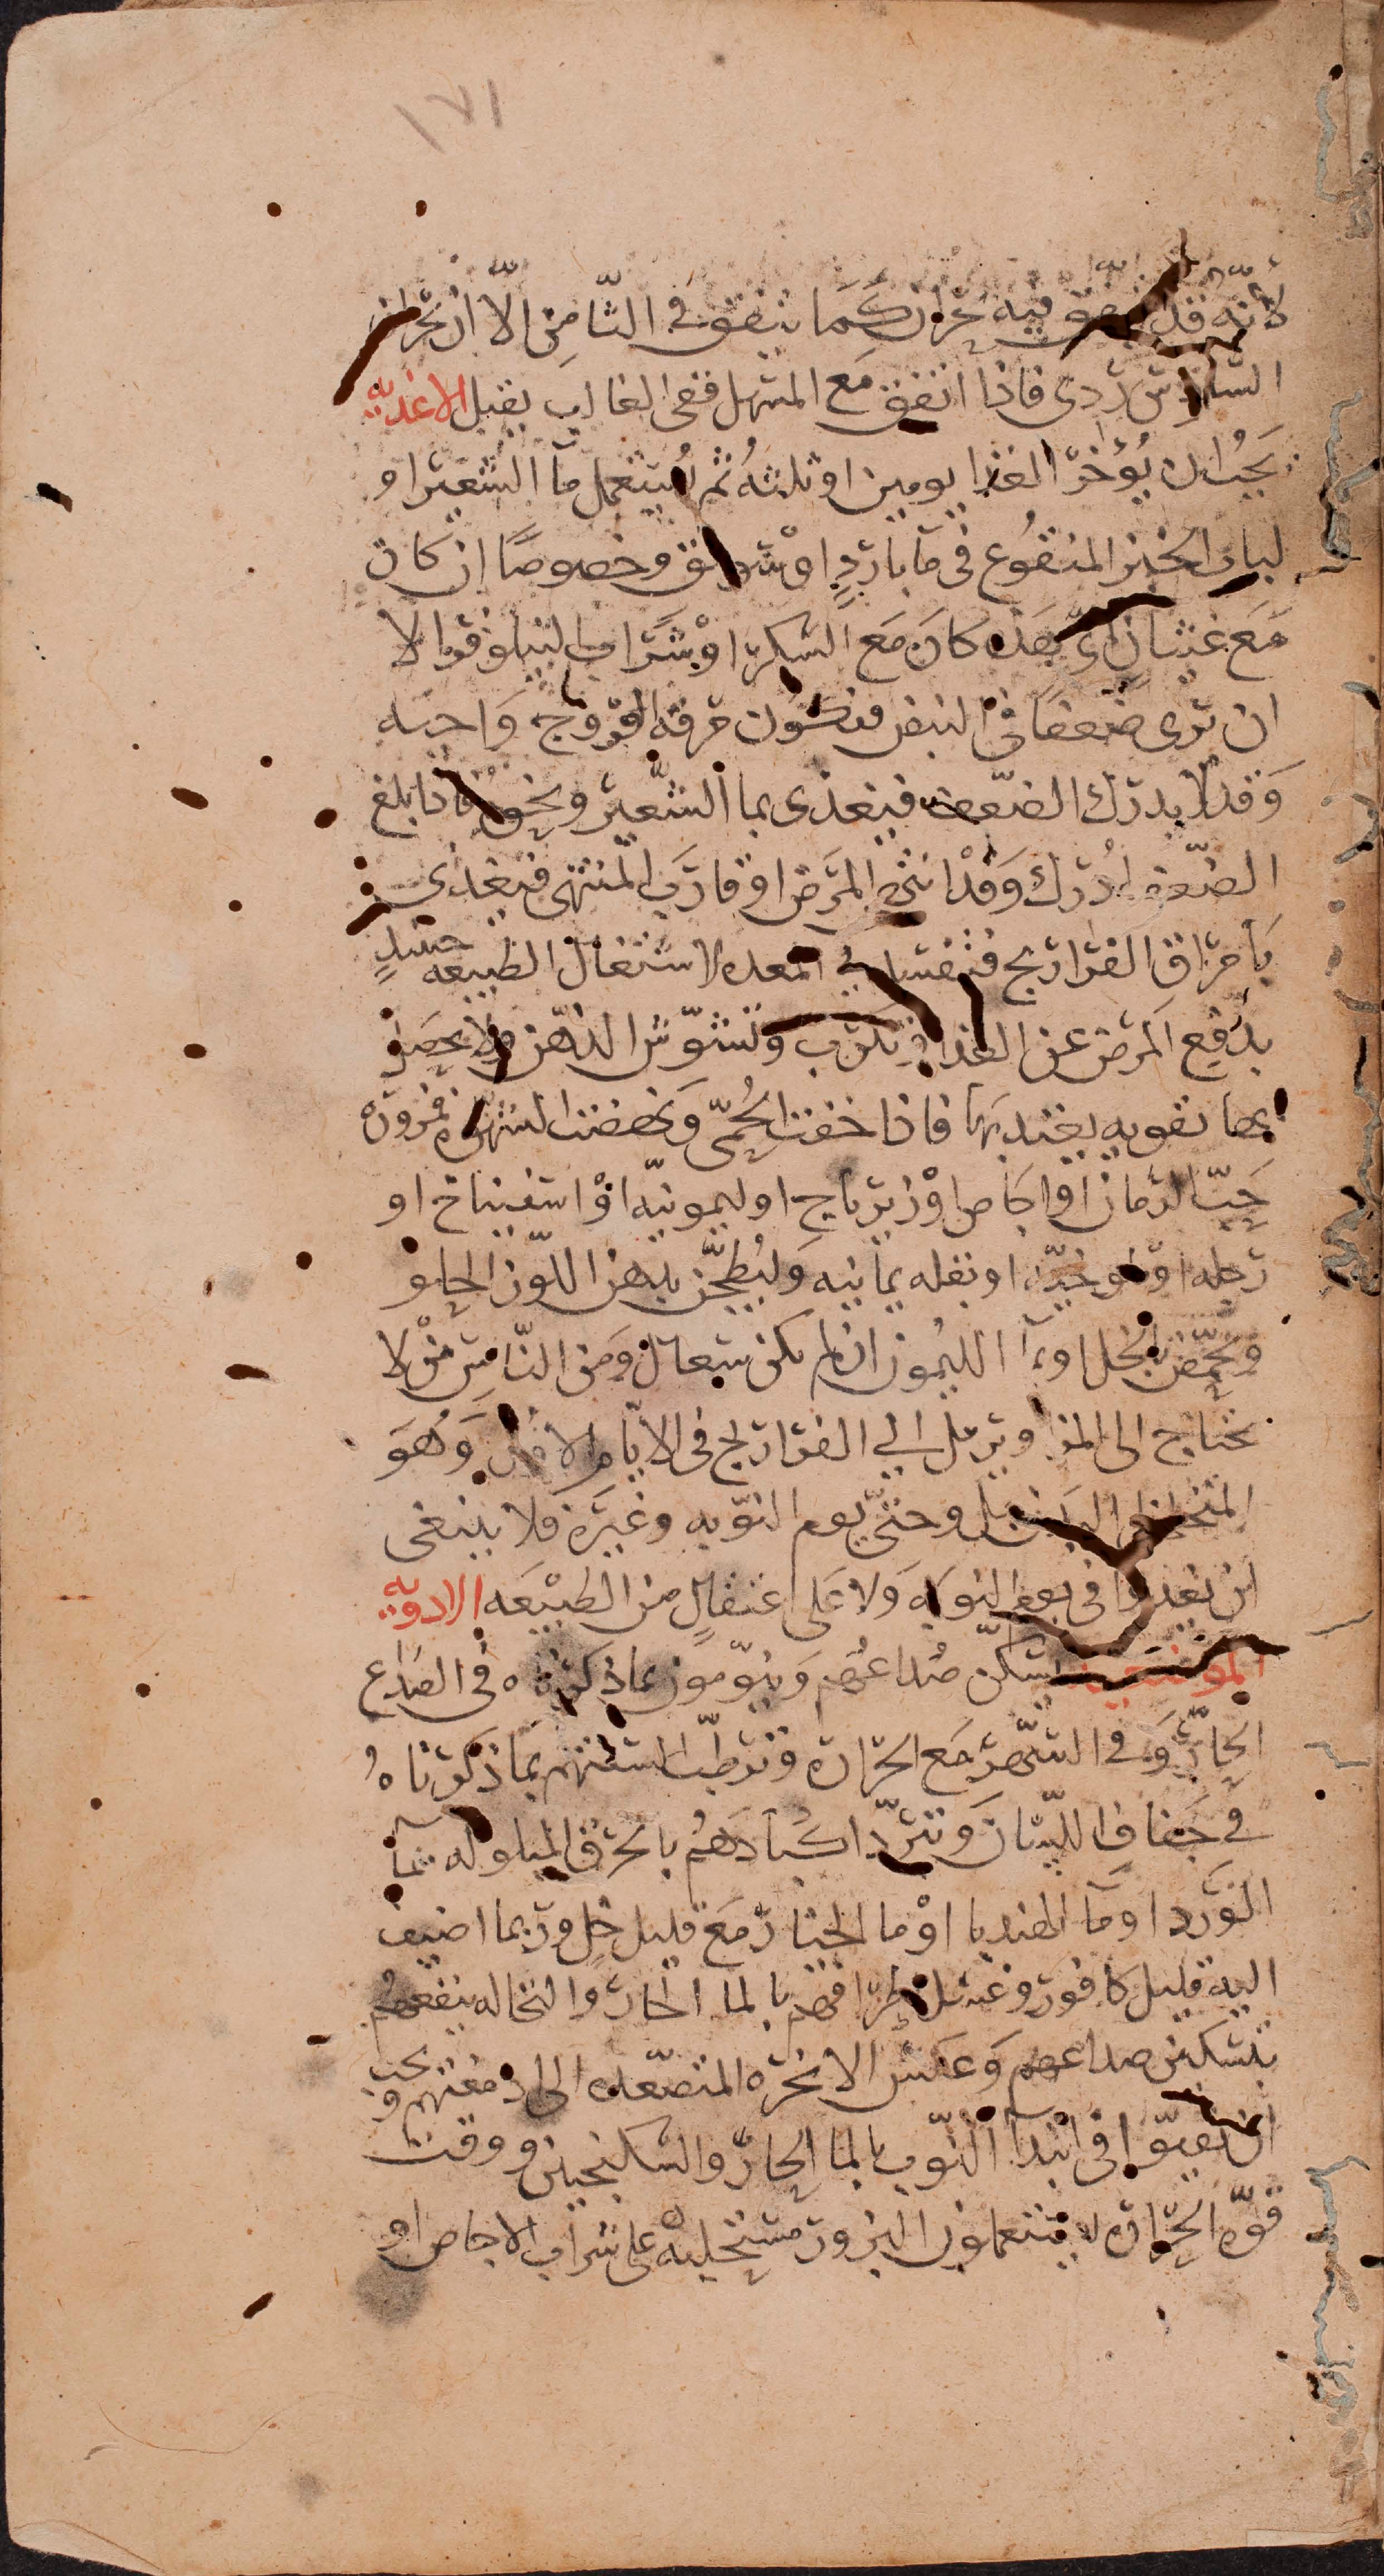 ١٧١
لأنّه قد يتفق فيه بحران كَمَا يتفق في الثّامِن الّا ان بحران
السّادس ردى فاذا اتفق مَع المسهل ففى الغالب يقتل الاغذيه
يَجبُ ان يُؤخرّ الغذا يومين او ثلثهُ ثم يُستعمل مآ الشعير او
لباب الخبز المنقُوع فى مآ باردٍ اوْ سويق وخصوصًا ان كان
مَعَ غثيان اىّ هَذه كانَ مَع السكر اوْ شرَاب النيلوفر الا
ان ترى ضعفًا فى النبض فتكون مرقه الفروج وَاجبه
وَقد لا يدرك الضّعف فيغذى بمآ الشّعير ونحوه فاذا بلغ
الضّعف ادُرك وَقدْ انتهى المَرض او قارَب المنتهى فيغذى
بَامْرَاق الفرَاريج فتفسد فى المعده لاشتغال الطبيعه حينئذٍ
بدَفع المَرض عن الغذا فيكرب وَتشوّش الذهن ولا يحصَل
بها تقويه يعتد بها فاذا خفت الحُمّى وَنهضت الشهوه فمزوره
حَبّ الرمان او اجَاص اوْ زيرباج او ليمونيّه اوْ اسفيناخ او
رجله او ملوخيّه او بقله يمانيه وَليُطجّن بدهن اللّوز الحلو
ويُحمّض بالخل او بمآ الليمون ان لم يكن سعال وَمن النّاس مَنْ لا
يحتاج الى المزاوير بل الى الفراريج فى الايّام الاول وَهُوَ
المتخلخل البدن بل وحتىّ يوم النّوبه وغيَره فلا ينبغى
ان يغدوا فى يوم النوبَه وَلا عَلى اعتقالٍ من الطبيْعَه الادويه
يسَكنّ صُداعهُم وَينوّمون بما ذكرناه فى الصَداع
الحَارّ وَفى السّهر مَع الحَرَارة وَترطّب السنتهم بمَا ذكرناهُ
فى جَفاف اللّسَان وَتبرّد اكبَادَهُم بالخرق المبلوله بمآ
الوَرد او مَآ الهندبا اوْ مآ الخيَار مَعَ قليل خلٍ وربما اضيف
اليه قليل كافور وغسْل اطرافهم بالما الحار والنخاله ينفعهُم
بتسكين صداعهم وَعكس الابخره المتصّعده الى ادمغتهم ويجب
ان يقيّوا فى ابتدآ النّوب بالما الحارّ والسكنجبين ووقت
قوّه الحَرَاره لا يستعملون البزور مستحلبهْ على شراب الاجاص او